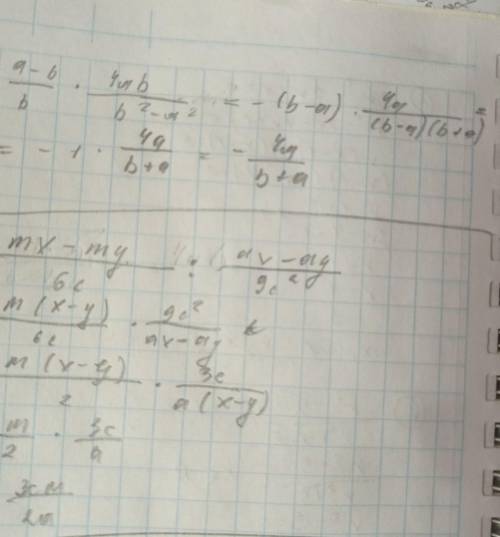 (a-b)/b · 4ab/(b²-a²) = -(b-a) · 4a/((b-a)(b+a)) =
= -1 · 4a/(b+a) = - 4a/(b+a)
(mx-my)/6c : (ax-ay)/9c²
m(x-y)/6c · 9c²/(ax-ay)
m(x-y)/2 · 3c/(a(x-y))
m/2 · 3c/a
3cm/2a